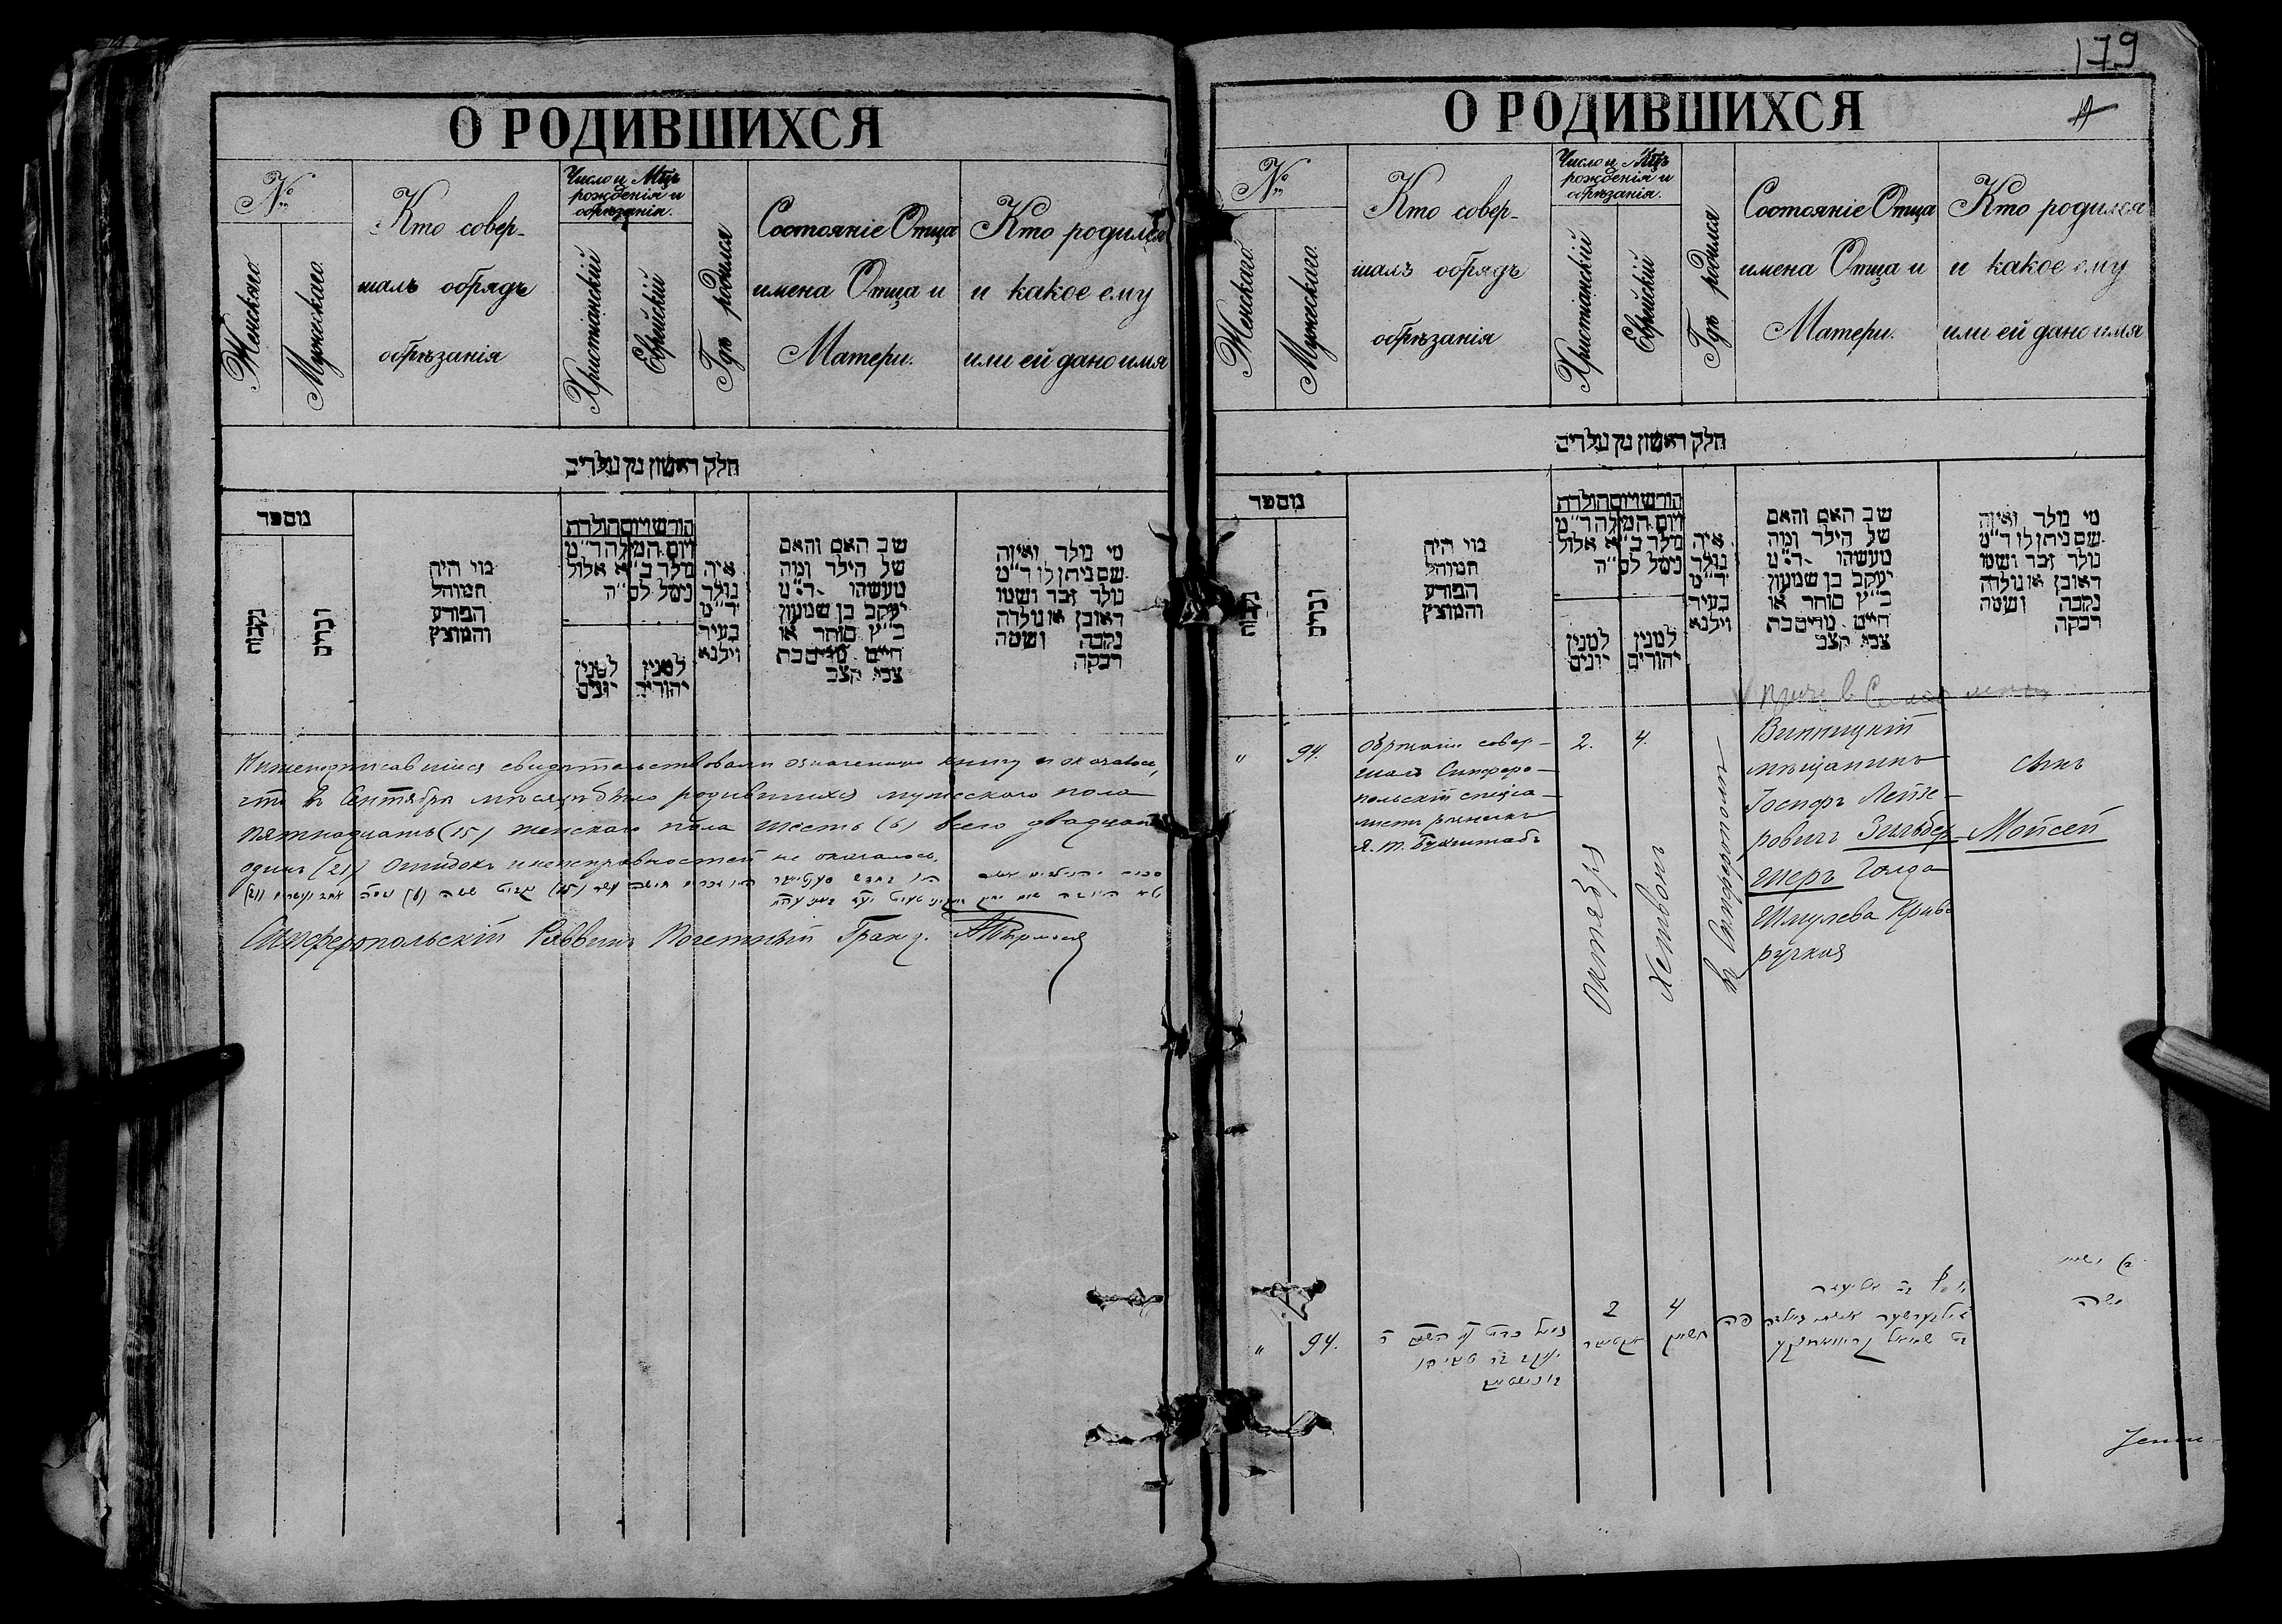 О РОДИВШИХСЯ
№
Женскаго.
Мужескаго.
Кто совер-
шалъ обрядъ
обрѣзанія
Число и Мцъ
рожденія и
обрѣзанія.
Христіанскій
Еврейскій
Гдѣ родился
Состояніе Отца
имена Отца и
Матери.
Кто родился
и какое ему
или ей дано имя
חלק ראשון מן נולדים
מספר
נקבות
זכרים
מי היה
המוהל
הפורע
והמוצץ
חודש ויום הולדת
ויום המילה ד״מ
נולד ב״א אלול
נימל לס״ה
למנין
יונים
למנין
יהודים
איה
נולד
ד״מ
בעיר
ווילנא
שם האם והאם
של הילד ומה
מעשהו ד״מ
יעקב בן שמעון
כ״ץ סוחר או
חיים מרים בת
צבי קצב
מי נולד ואיזה
שם ניתן לו ד״מ
נולד זכר ושמו
ראובן או נולדה
נקבה ושמה
רבקה
Нижеподписавшіеся свидѣтельствовали означенную книгу и оказалось,
что въ Сентябрѣ мѣсяцѣ было родившихся мужескаго пола
пятнадцать (15) женскаго пола шесть (6) всего двадцать
одинъ (21) ошибокъ и неисправностей не оказалось.
Симферопольскій Раввинъ Почетный Гражд.
179
О РОДИВШИХСЯ
№
Женскаго.
Мужескаго.
Кто совер-
шалъ обрядъ
обрѣзанія
Число и Мцъ
рожденія и
обрѣзанія.
Христіанскій
Еврейскій
Гдѣ родился
Состояніе Отца
имена Отца и
Матери.
Кто родился
и какое ему
или ей дано имя
חלק ראשון מן נולדים
מספר
נקבות
זכרים
מי היה
המוהל
הפורע
והמוצץ
חודש ויום הולדת
ויום המילה ד״מ
נולד ב״א אלול
נימל לס״ה
למנין
יונים
למנין
יהודים
איה
נולד
ד״מ
בעיר
ווילנא
שם האם והאם
של הילד ומה
מעשהו ד״מ
יעקב בן שמעון
כ״ץ סוחר או
חיים מרים בת
צבי קצב
מי נולד ואיזה
שם ניתן לו ד״מ
נולד זכר ושמו
ראובן או נולדה
נקבה ושמה
רבקה
" 94.
Обрѣзаніе совер-
шалъ Симферо-
польскій спеціа-
листъ
2.
Октября
4.
Хешвонъ
въ Симферополѣ
Винницкій
мѣщанинъ
Іосифъ Лейзе-
ровичъ Зильбер-
шеръ Голда
Шмулева Криво
ручкия
сынъ
Мойсей
" 94.
2
4
פה
משה